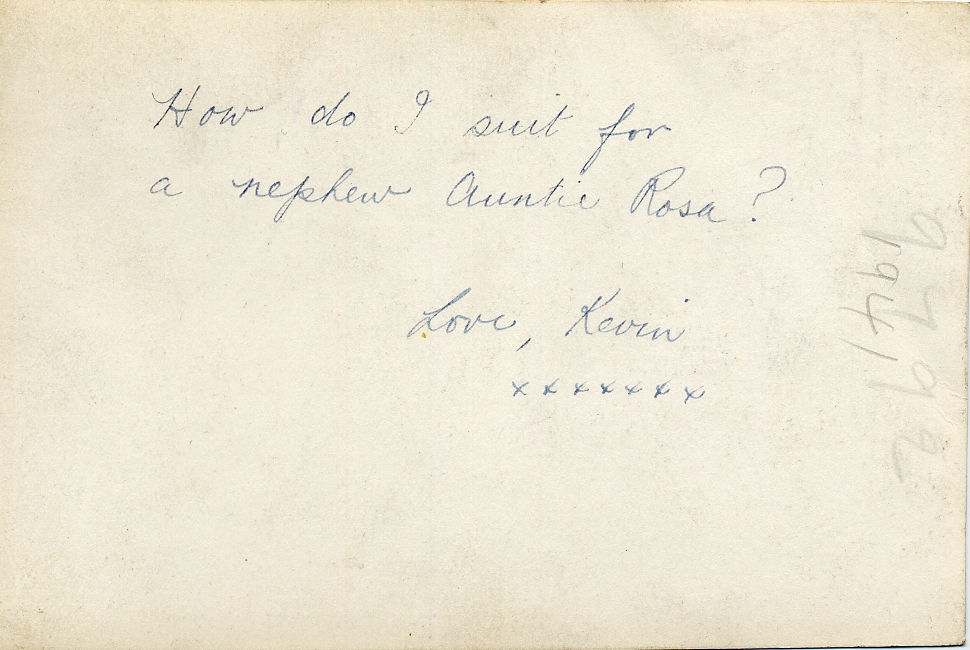 How do I suit for
a nephew Auntie Rosa?
Love, Kevin
xxxxxxx